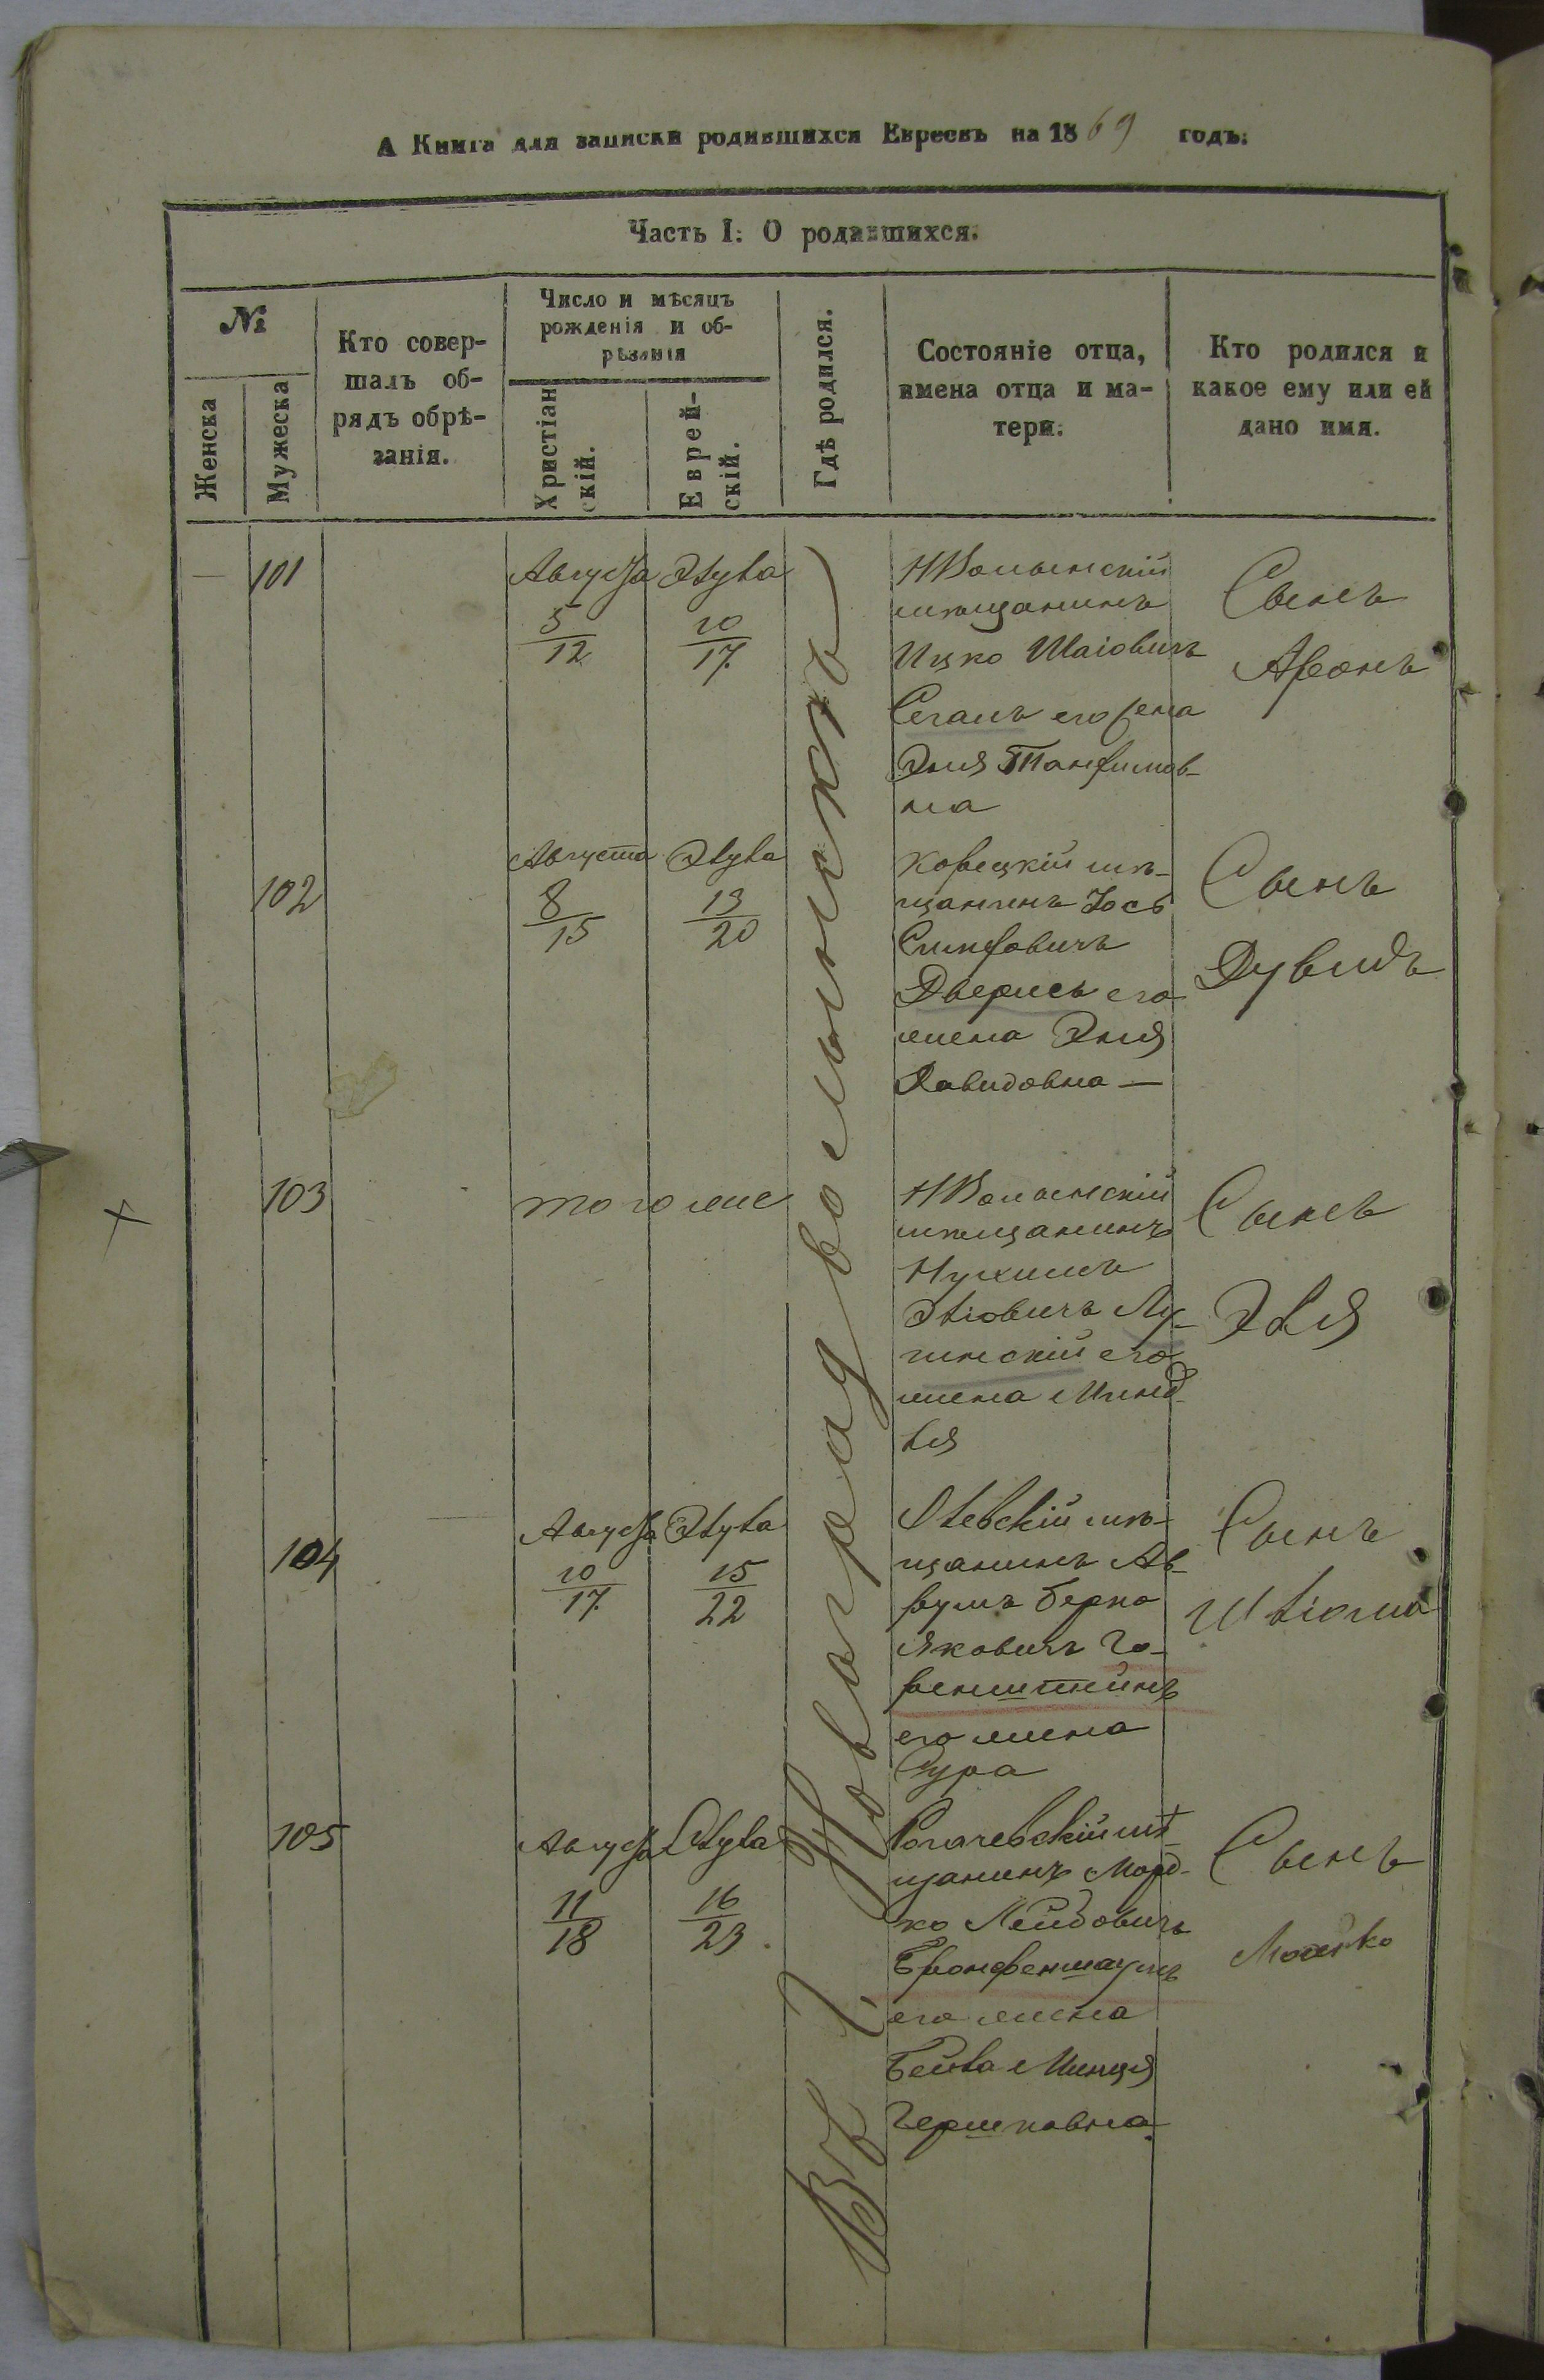 А Книга для записки родившихся Евреевъ на 1869 годъ.
Часть I: О родившихся.
№
Женска
Мужеска
Кто совер-
шалъ об-
рядъ обрѣ-
занія.
Число и мѣсяцъ
рожденія и об-
рѣзанія
Христіан
скій.
Еврей-
скій.
Гдѣ родился.
Состояніе отца,
имена отца и ма-
тери.
Кто родился и
какое ему или ей
дано имя.
Въ г. Новоградволынскѣ
101
Августа Элула
5/12
10/17
НВолынскій
мѣщанинъ
Ицко Шаіовичъ
Сегалъ его жена
Эля
на
Сынъ
Аронъ
102
Августа Элула
8/15
13/20
Корецкій мѣ-
щанинъ Іось
Дверись его
жена Эля
Давидовна —
Сынъ
Дувидъ
103
того же
НВолынскій
мѣщанинъ
Нухимъ
Эліовичъ Лу-
гинскій его
жена Минд-
ля
Сынъ
Эля
104
Августа Элула
10/17
15/22
Олевскій мѣ-
щанинъ Ав-
румъ Берко
Яковичъ Го-
ренштейнъ
его жена
Сура
Сынъ
Шліома
105
Августа Элула
11/18
16/23
Рогачевскій мѣ-
щанинъ Морд-
ко Лейбовичъ
Бронфенмаумъ
его жена
Бейла Минця
Гершковна
Сынъ
Мошко